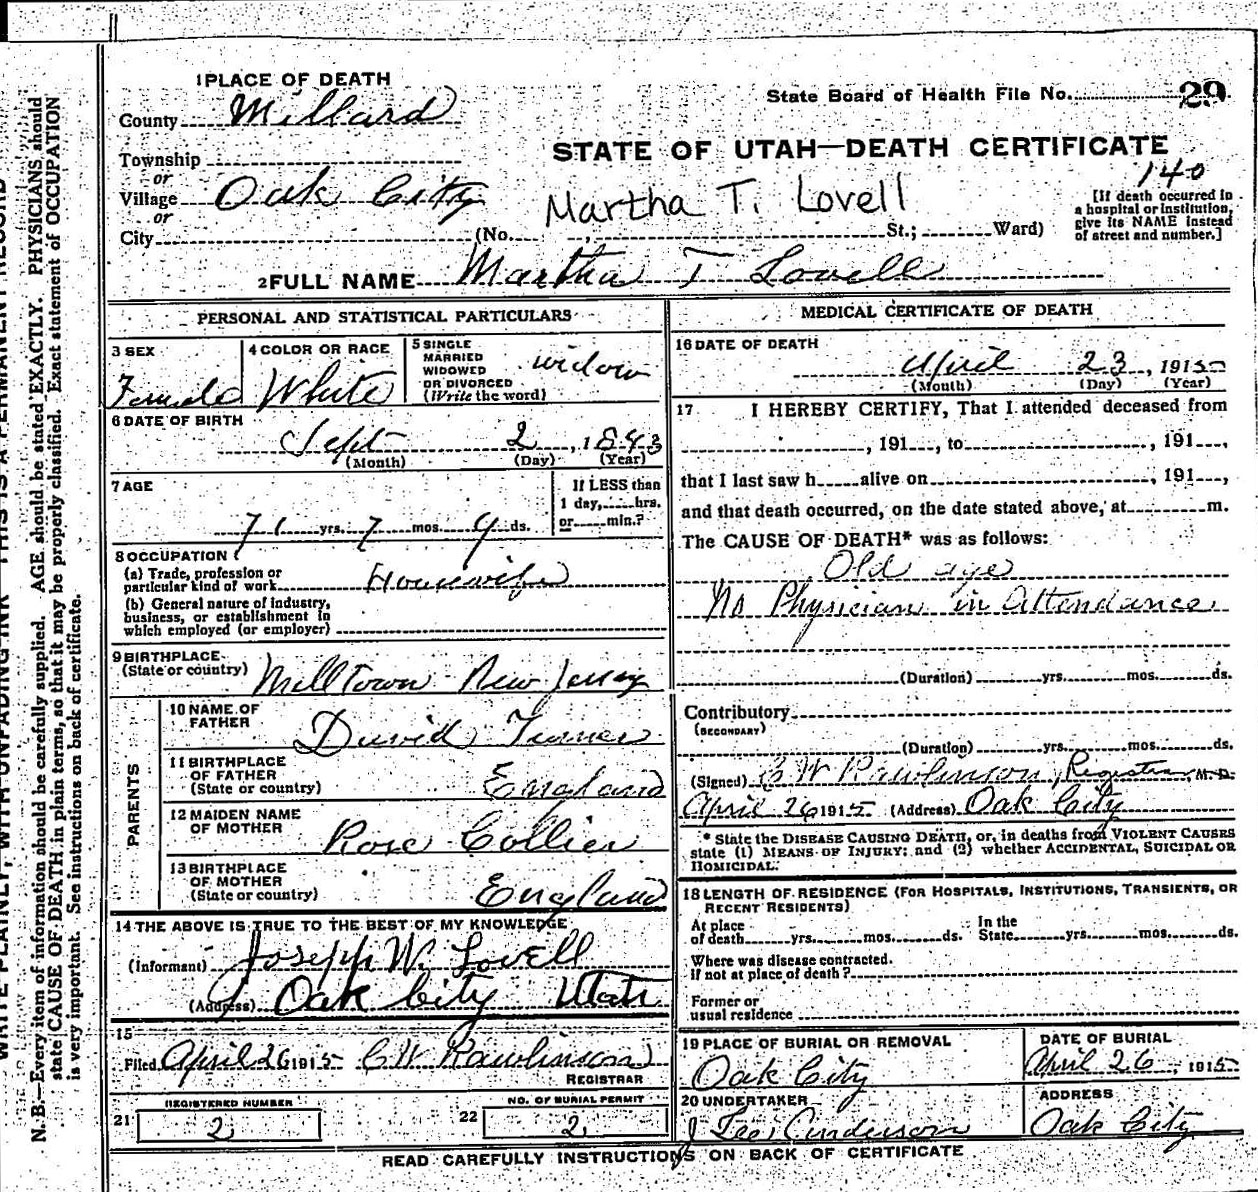 WRITE PLAINLY, WITH UNFADING INK—THIS IS A PERMANENT RECORD
N. B.—Every item of information should be carefully supplied. AGE should be stated EXACTLY. PHYSICIANS should
state CAUSE OF DEATH in plain terms, so that it may be properly classified. Exact statement of OCCUPATION
is very important. See instructions on back of certificate.
1 PLACE OF DEATH
County Millard
Township
or
Village Oak City
or
City (No. St.; Ward)
State Board of Health File No. 29
STATE OF UTAH—DEATH CERTIFICATE
140
Martha T. Lovell
[If death occurred in
a hospital or institution,
give its NAME instead
of street and number.]
2 FULL NAME Martha T Lovell
PERSONAL AND STATISTICAL PARTICULARS
3 SEX
Female
4 COLOR OR RACE
White
5 SINGLE
MARRIED
WIDOWED
OR DIVORCED
(Write the word)
widow
6 DATE OF BIRTH
Sept 2, 1843
(Month) (Day) (Year)
7 AGE
71 yrs. 7 mos. 9 ds.
If LESS than
1 day, hrs.
or min.?
8 OCCUPATION
(a) Trade, profession or
particular kind of work Housewife
(b) General nature of industry,
business, or establishment in
which employed (or employer)
9 BIRTHPLACE
(State or country) Milltown New Jersey
PARENTS
10 NAME OF
FATHER David Turner
11 BIRTHPLACE
OF FATHER
(State or country) England
12 MAIDEN NAME
OF MOTHER Rose Collier
13 BIRTHPLACE
OF MOTHER
(State or country) England
14 THE ABOVE IS TRUE TO THE BEST OF MY KNOWLEDGE
(Informant) Joseph W. Lovell
(Address) Oak City Utah
15
Filed April 26 1915 C W Rawlinson
REGISTRAR
21 REGISTERED NUMBER
2
22 NO. OF BURIAL PERMIT
2
MEDICAL CERTIFICATE OF DEATH
16 DATE OF DEATH
April 23, 1915
(Month) (Day) (Year)
17 I HEREBY CERTIFY, That I attended deceased from
, 191 , to , 191 ,
that I last saw h alive on , 191 ,
and that death occurred, on the date stated above, at m.
The CAUSE OF DEATH* was as follows:
Old age
No Physician in Attendance
(Duration) yrs. mos. ds.
Contributory
(SECONDARY)
(Duration) yrs. mos. ds.
(Signed) C W Rawlinson, Registrar M. D.
April 26 1915 (Address) Oak City
* State the DISEASE CAUSING DEATH, or, in deaths from VIOLENT CAUSES
state (1) MEANS OF INJURY; and (2) whether ACCIDENTAL, SUICIDAL OR
HOMICIDAL.
18 LENGTH OF RESIDENCE (FOR HOSPITALS, INSTITUTIONS, TRANSIENTS, OR
RECENT RESIDENTS)
At place
of death yrs. mos. ds.
In the
State yrs. mos. ds.
Where was disease contracted.
if not at place of death?
Former or
usual residence
19 PLACE OF BURIAL OR REMOVAL
Oak City
DATE OF BURIAL
April 26, 1915
20 UNDERTAKER
J Lee Anderson
ADDRESS
Oak City
READ CAREFULLY INSTRUCTIONS ON BACK OF CERTIFICATE